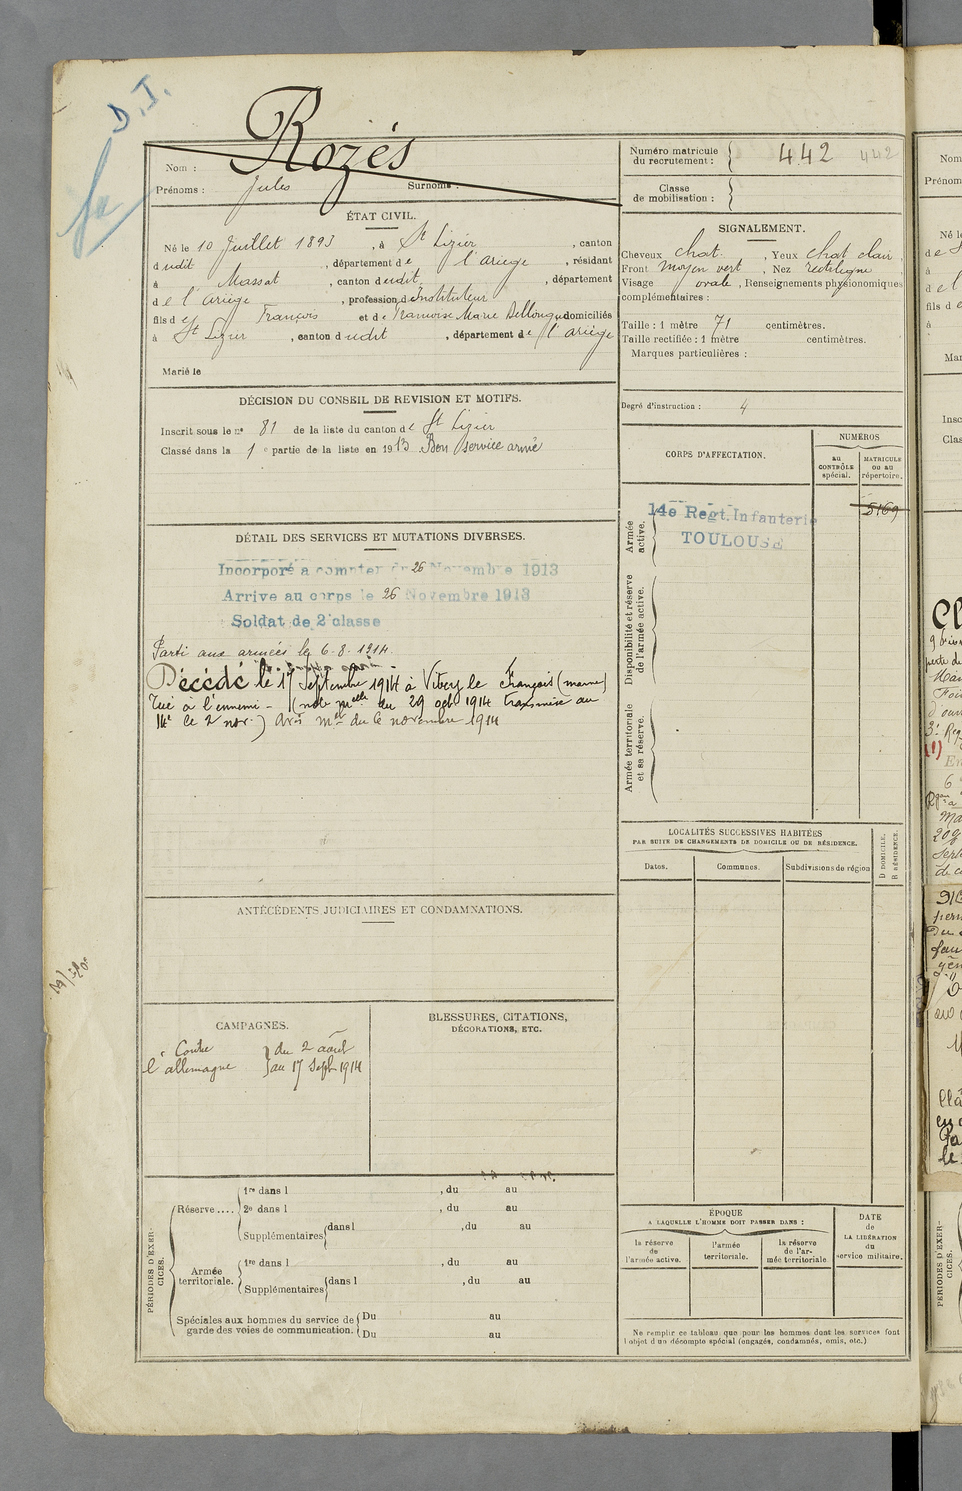 D.I.
Rozés
Nom :
Prénoms : Jules Surnoms :
Numéro matricule du recrutement : 442 442
Classe de mobilisation :
ÉTAT CIVIL.
Né le 10 Juillet 1893, à St Lizier, canton
dudit, département de l'ariège, résidant
à Massat, canton dudit, département
de l'ariège, profession d'Instituteur
fils de François et de Françoise Marie domiciliés
à St Lizier, canton dudit, département de l'ariège
Marié le
SIGNALEMENT.
Cheveux chat. , Yeux chat clair ,
Front moyen vert , Nez rectiligne
Visage ovale , Renseignements physionomiques
complémentaires :
Taille : 1 mètre 71 centimètres.
Taille rectifiée : 1 mètre centimètres.
Marques particulières :
Degré d'instruction : 4
DÉCISION DU CONSEIL DE REVISION ET MOTIFS.
Inscrit sous le no 81 de la liste du canton de St Lizier
Classé dans la 1e partie de la liste en 1913 Bon service armé
CORPS D'AFFECTATION.
NUMÉROS
au CONTRÔLE spécial.
MATRICULE ou au répertoire.
Armée active.
14e Regt. Infanterie
TOULOUSE
5169
Disponibilité et réserve de l'armée active.
Armée territoriale et sa réserve.
DÉTAIL DES SERVICES ET MUTATIONS DIVERSES.
Incorporé a compter du 26 Novembre 1913
Arrive au corps le 26 Novembre 1913
Soldat de 2 classe
Parti aux armées le 6-8-1914.
Décédé le 17 Septembre 1914 à Vitry le François (marne)
Tué à l'ennemi - (note melle du 29 oct 1914 transmise au
14e le 2 nov.) Avis mel du 6 novembre 1914
LOCALITÉS SUCCESSIVES HABITÉES
PAR SUITE DE CHANGEMENTS DE DOMICILE OU DE RÉSIDENCE.
Dates. Communes. Subdivisions de région
D DOMICILE. R RÉSIDENCE.
ANTÉCÉDENTS JUDICIAIRES ET CONDAMNATIONS.
CAMPAGNES.
Contre du 2 août
l'allemagne au 17 Sept 1914
BLESSURES, CITATIONS,
DÉCORATIONS, ETC.
PÉRIODES D'EXERCICES.
Réserve....
1re dans l , du au
2e dans l , du au
Supplémentaires dans l , du au
Armée territoriale.
1re dans l , du au
Supplémentaires dans l , du au
Spéciales aux hommes du service de Du au
garde des voies de communication. Du au
ÉPOQUE
A LAQUELLE L'HOMME DOIT PASSER DANS :
la réserve de l'armée active.
l'armée territoriale.
la réserve de l'armée territoriale
DATE de LA LIBÉRATION du service militaire.
Ne remplir ce tableau que pour les hommes dont les services font
l'objet d'un décompte spécial (engagés, condamnés, omis, etc.)